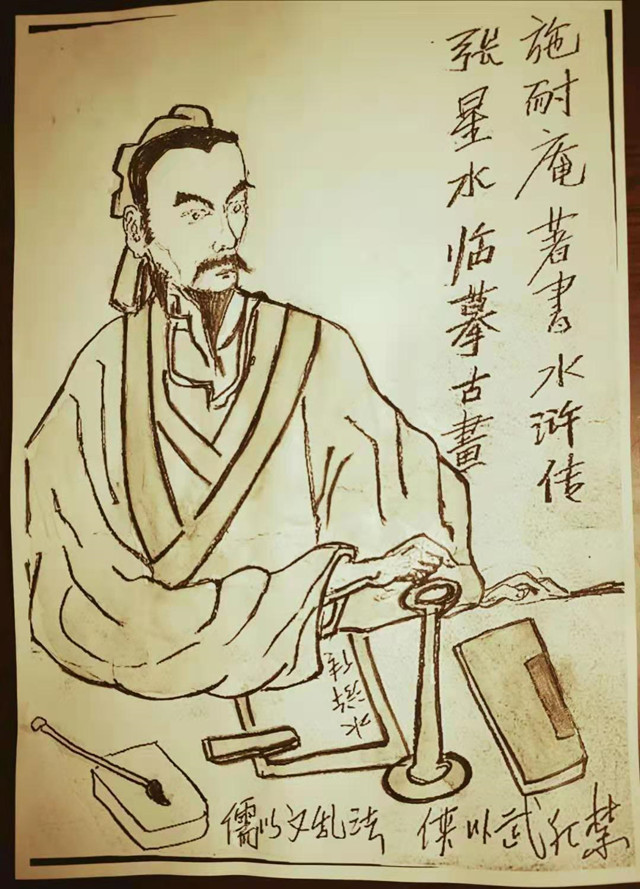 施耐庵著書水浒传
张星水临摹古畫
水浒传
儒以文乱法 侠以武犯禁